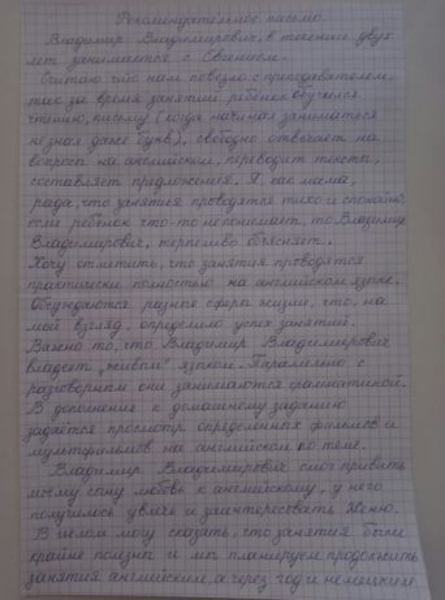 Рекомендательное письмо.
Владимир Владимирович, в течении двух
лет занимается с Евгением.
Считаю что нам повезло с преподавателем,
так за время занятий ребёнок обучился
чтению, письму (когда начинал заниматься
не знал даже букв), свободно отвечает на
вопросы на английском, переводит тексты,
составляет предложения. Я, как мама,
рада, что занятия проводятся тихо и спокойно,
если ребёнок что-то не понимает, то Владимир
Владимирович, терпеливо объясняет.
Хочу отметить, что занятия проводятся
практически полностью на английском языке.
Обсуждаются разные сферы жизни, что, на
мой взгляд, определило успех занятий.
Важно то, что Владимир Владимирович
владеет „живым" языком. Паралельно с
разговорным они занимаются грамматикой.
В дополнение к домашнему заданию
задаётся просмотр определенных фильмов и
мультфильмов на английском по теме.
Владимир Владимирович смог привить
моему сыну любовь к английскому, у него
получилось увлечь и заинтересовать Женю.
В целом могу сказать, что занятия были
крайне полезны и мы планируем продолжить
занятия английским, а через год и немецким